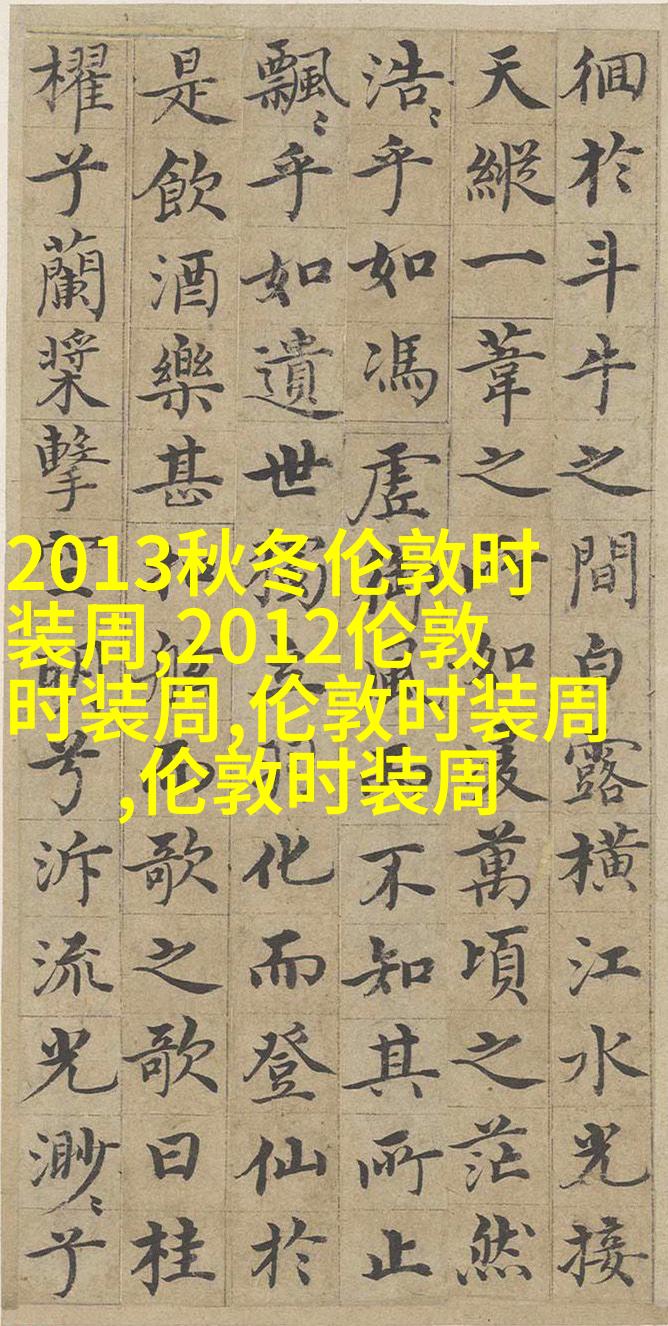 徊於斗牛之間白露橫江水光接
天縱一葦之所如凌萬頃之茫然
浩〻乎如馮虛御風而不知其所止
飄〻乎如遺世獨立羽化而登仙於
是飲酒樂甚扣舷而歌之歌曰桂
櫂兮蘭槳擊空明兮泝流光渺〻兮
2013秋冬伦敦时
装周,2012伦敦
时装周,伦敦时装周
,伦敦时装周